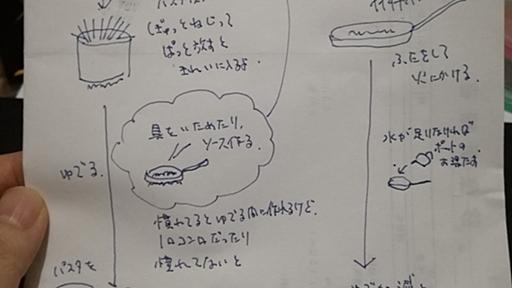 ぎゅっとねじって
ぱっと放すと
きれいに入るよ
ゆでる。
具をいためたり、
ソース作る。
慣れてるとゆでる間に作れるけど、
1口コンロだったり
慣れてないと
パスタを
ふたをして
火にかける。
水が足りなければ
ポットの
お湯たす